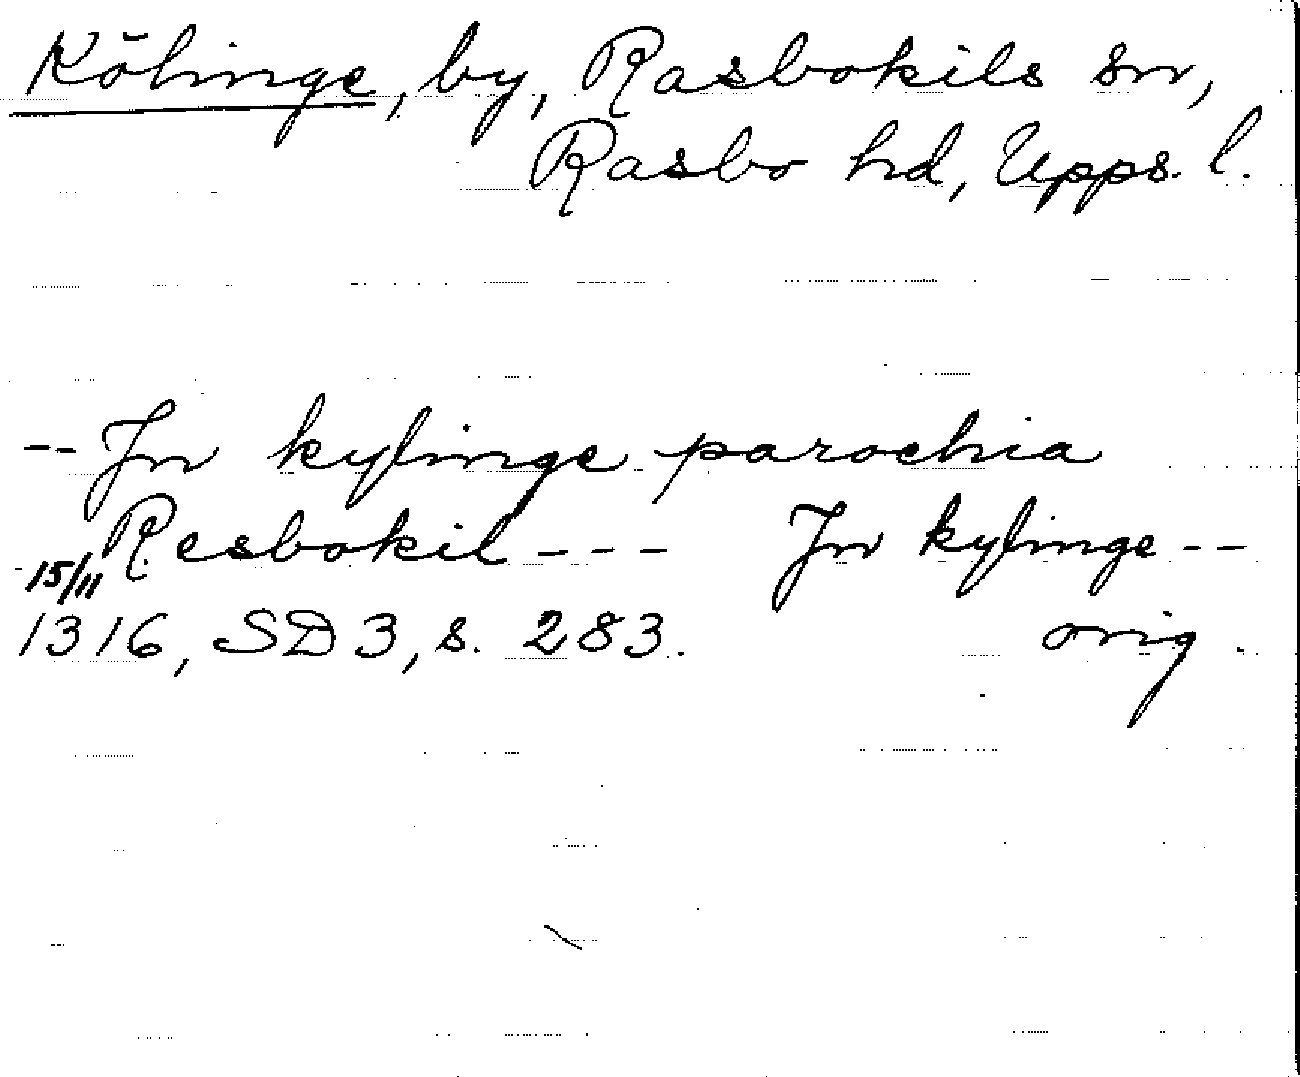 Kölinge, by, Rasbokils sn,
Rasbo hd, Upps. l.
-- Jn kylinge parochia
Resbokil --- Jn kylinge --
15/11
1316, SD 3, s. 283. orig.